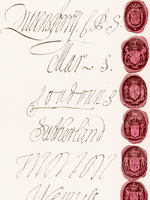 Queensberry C P S.
Mar S.
Loudoun S
Sutherland
Morton
Wemyss